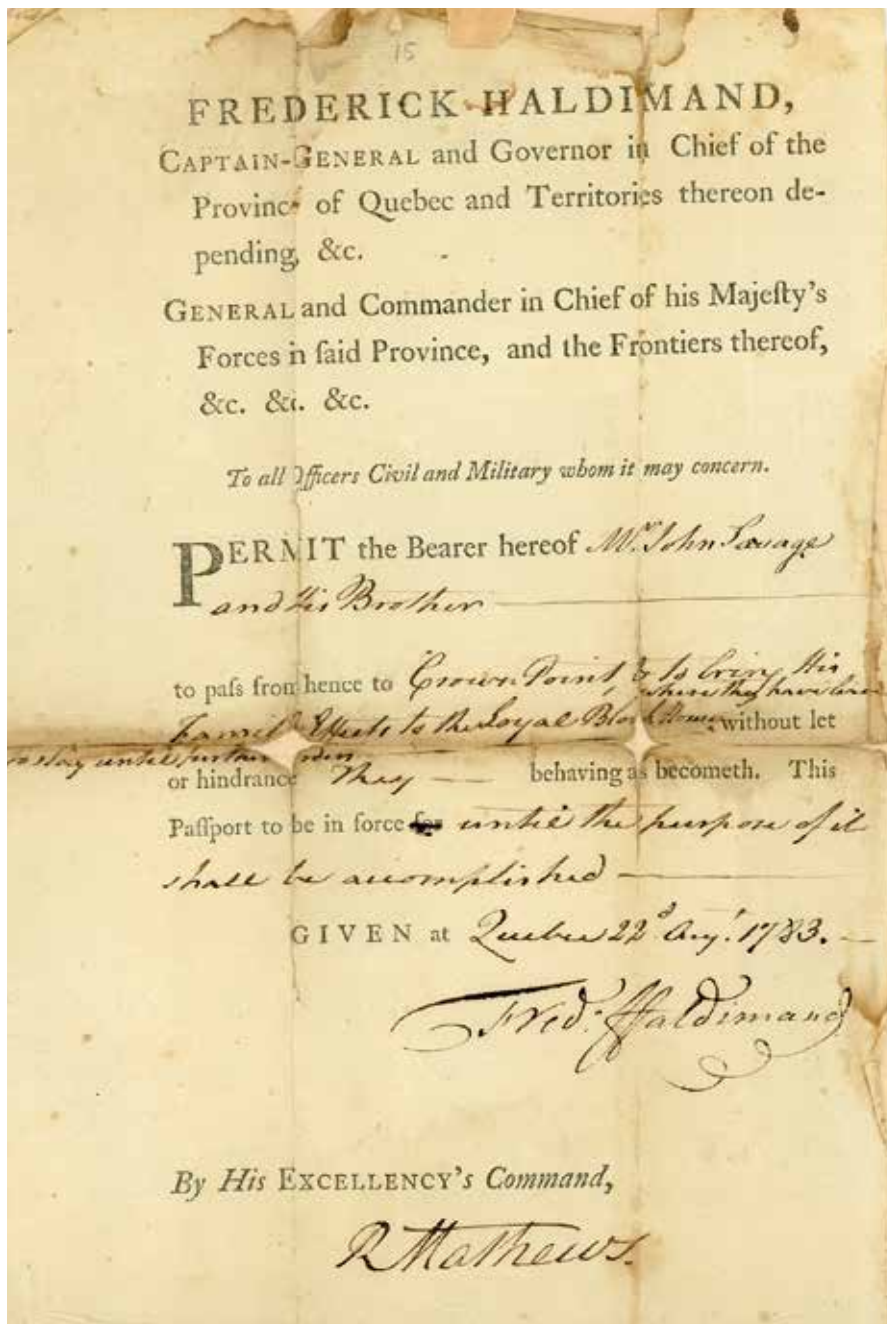 15
FREDERICK HALDIMAND,
CAPTAIN-GENERAL and Governor in Chief of the
Province of Quebec and Territories thereon de-
pending, &c.
GENERAL and Commander in Chief of his Majeſty's
Forces in ſaid Province, and the Frontiers thereof,
&c. &c. &c.
To all Officers Civil and Military whom it may concern.
PERMIT the Bearer hereof Mr. John Savage
and His Brother
to paſs from hence to Crown Point, & to bring His
where they have
Family Effects to the Loyal Block House, without let
stay until further orders
or hindrance They behaving as becometh. This
Paſſport to be in force for until the purpose of it
shall be accomplished
GIVEN at Quebec 22d Augt. 1783.
Fred: Haldimand
By His EXCELLENCY's Command,
R Mathews.